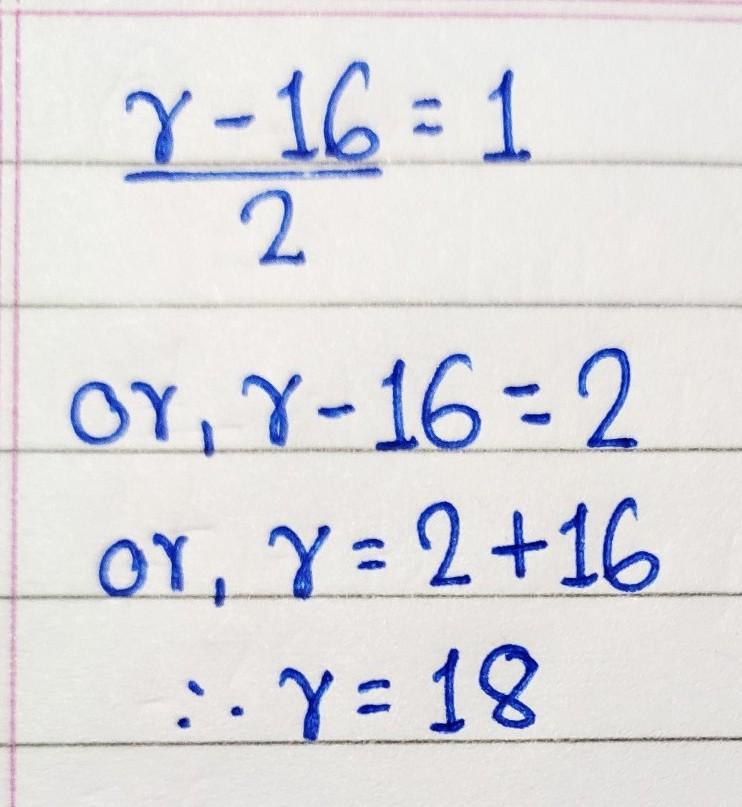 r - 16 = 1
2
or, r - 16 = 2
or, r = 2 + 16
∴ r = 18